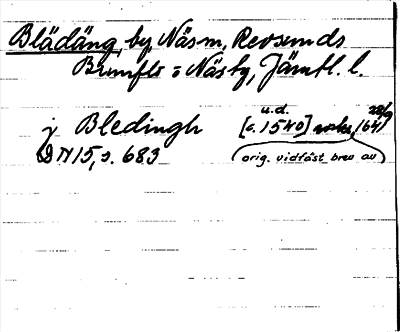 Blädäng, by, Näs sn, Revsunds
Brunflo o Näs tg, Jämtl. l.
u.d. 28/9
j Bledingh [c. 1540] /64)
DN 15, s. 683 (orig. vidfäst brev av)